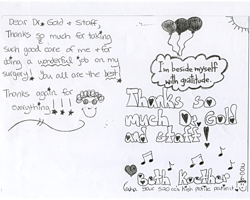 Dear Dr. Gold & Staff,
Thanks so much for taking
such good care of me & for
doing a wonderful job on my
surgery! You all are the best!
Thanks again for
everything!!!!
I'm beside myself
with gratitude.
Thanks so
much Dr. Gold
and staff!
Beth Koether
(aka your
high profile patient